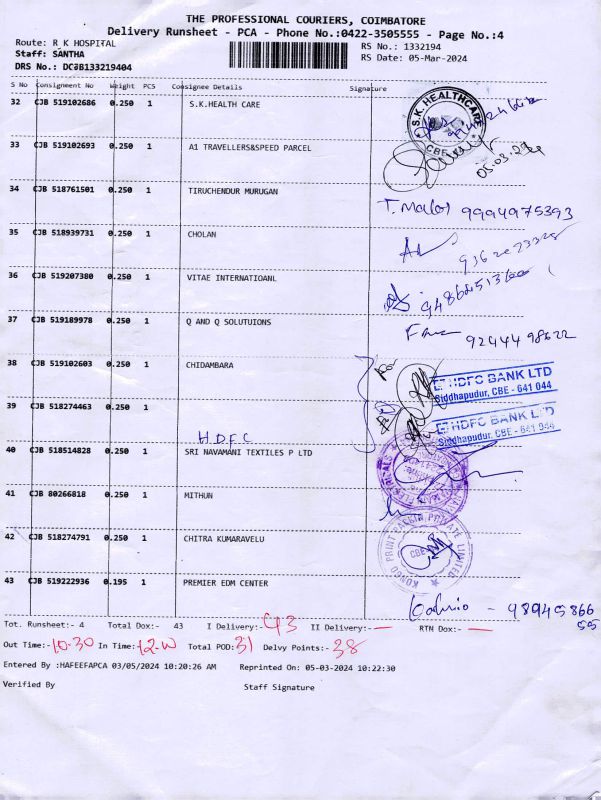 THE PROFESSIONAL COURIERS, COIMBATORE
Delivery Runsheet - PCA - Phone No.:0422-3505555 - Page No.:4
Route: R K HOSPITAL
RS No.: 1332194
Staff: SANTHA
RS Date: 05-Mar-2024
DRS No.: DCJB133219404
S No Consignment No Weight PCS Consignee Details Signature
32 CJB 519102686 0.250 1 S.K.HEALTH CARE
S.K. HEALTHCARE
CBE
33 CJB 519102693 0.250 1 A1 TRAVELLERS&SPEED PARCEL
05.03.24
34 CJB 518761501 0.250 1 TIRUCHENDUR MURUGAN
9994975393
35 CJB 518939731 0.250 1 CHOLAN
36 CJB 519207380 0.250 1 VITAE INTERNATIOANL
37 CJB 519189978 0.250 1 Q AND Q SOLUTUIONS
9244498622
38 CJB 519102603 0.250 1 CHIDAMBARA
HDFC BANK LTD
Siddhapudur, CBE - 641 044
39 CJB 518274463 0.250 1
HDFC BANK LTD
Siddhapudur, CBE - 641 044
H.D.F.C
40 CJB 518514828 0.250 1 SRI NAVAMANI TEXTILES P LTD
41 CJB 80266818 0.250 1 MITHUN
42 CJB 518274791 0.250 1 CHITRA KUMARAVELU
PRIVATE LIMITED
CBE
43 CJB 519222936 0.195 1 PREMIER EDM CENTER
Tot. Runsheet:- 4 Total Dox:- 43 I Delivery:- 43 II Delivery:- — RTN Dox:- —
Out Time:- 10.30 In Time:- Total POD: 31 Delvy Points:- 38
Entered By :HAFEEFAPCA 03/05/2024 10:20:26 AM Reprinted On: 05-03-2024 10:22:30
Verified By Staff Signature